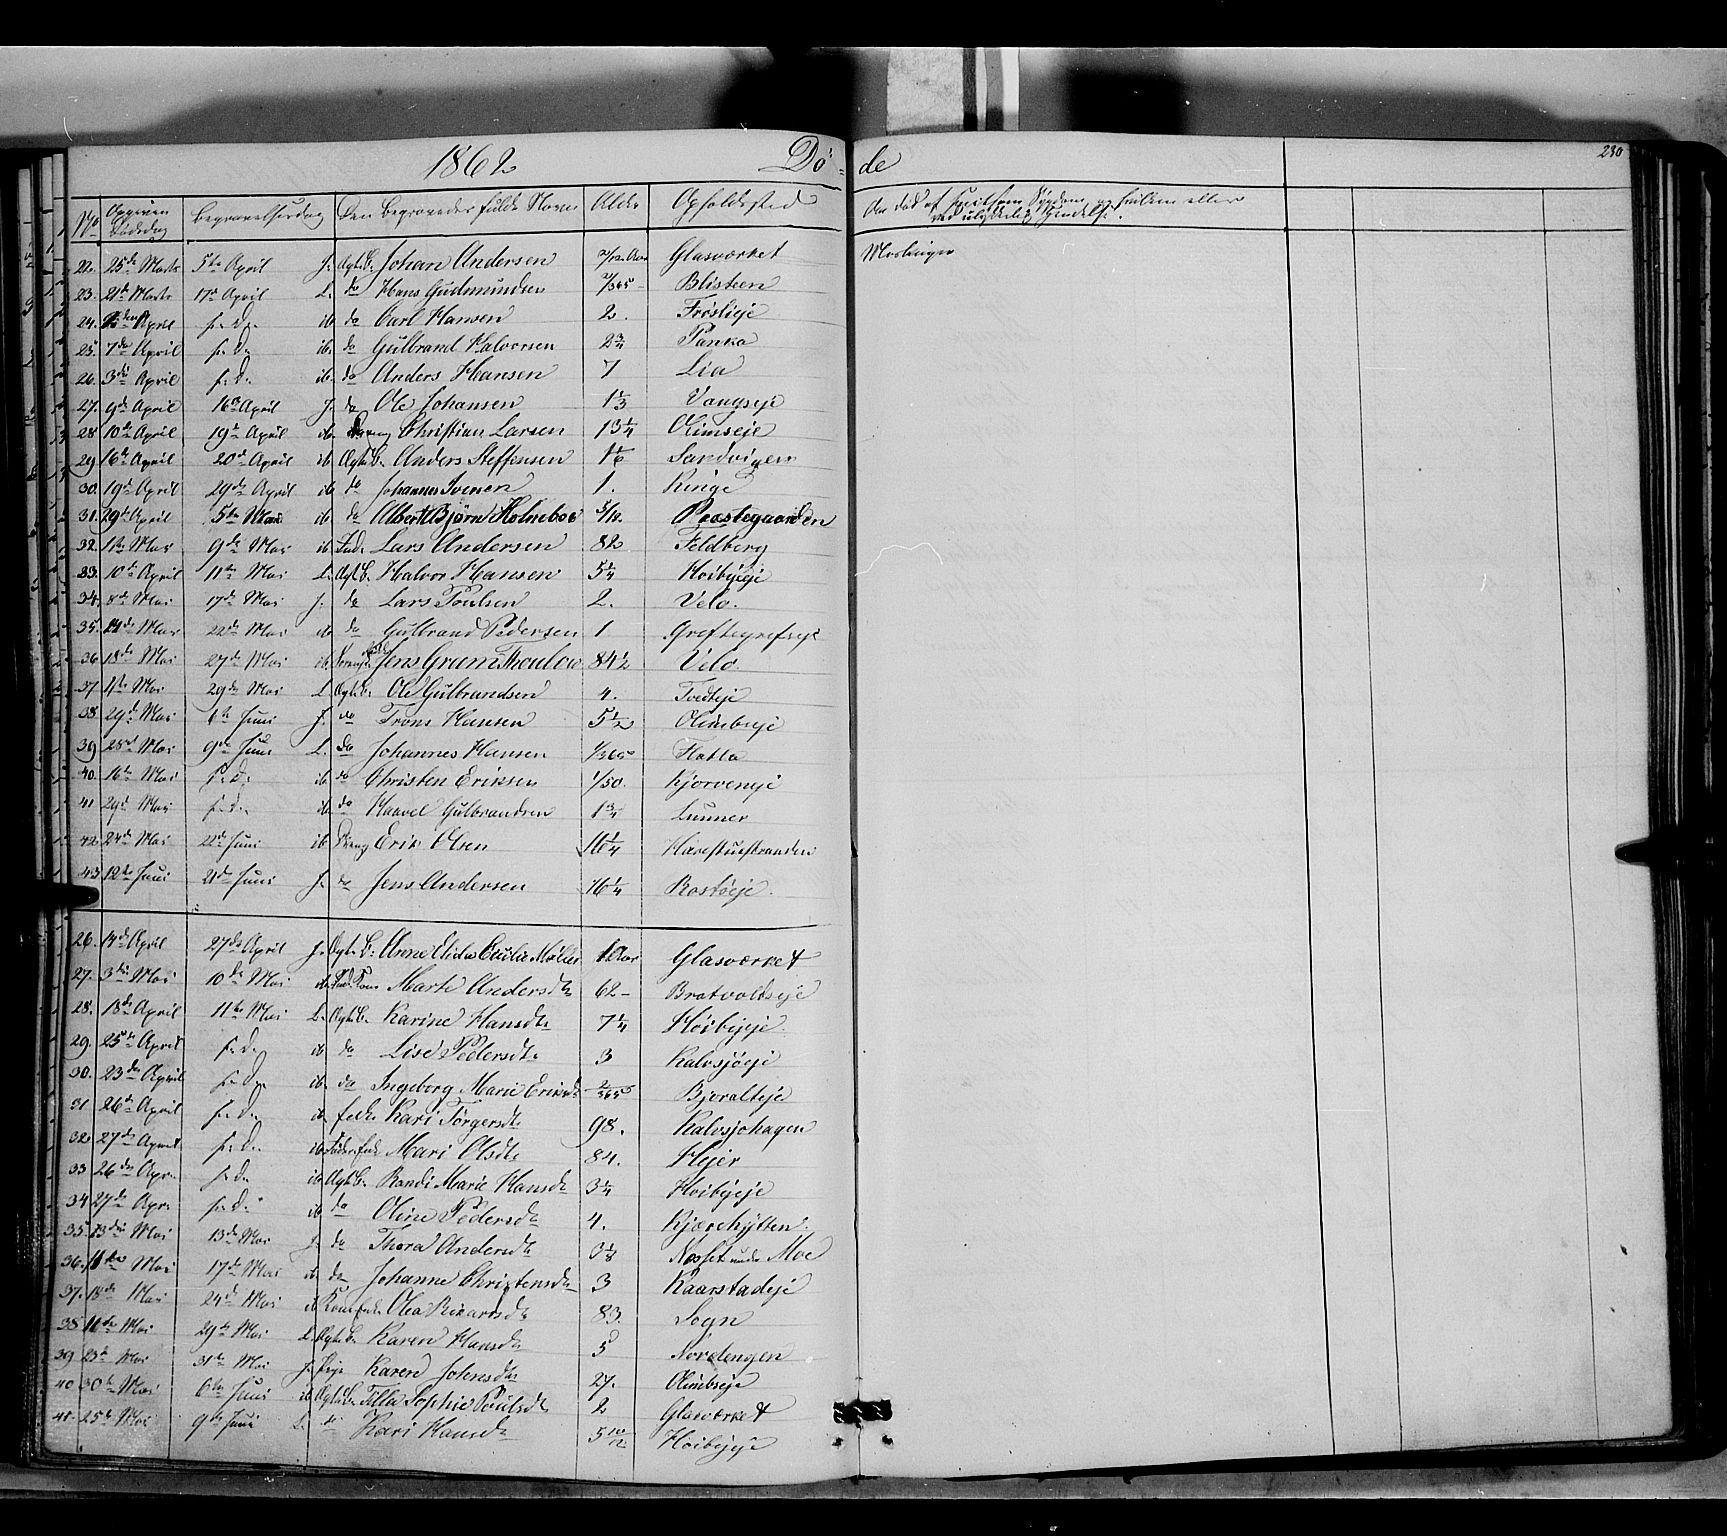 1862 Dö- de 230
No Angiven Dødsdag Begravelsesdag Den Begravedes fulde Navn Alder Opholdsted
22. 25de Marts 5te April J. Ægte B. Johan Andersen Glasværket Meslinger
23. 21de Marts 17de April L. do Hans Gudmundsen 2/365 Blisteen
24. April s. D. ib do Carl Hansen 2. Frøslieje
25. 7de April s. D. ib. do Gulbrand Halvorsen 2 3/4 Panka
26. 3die April s. D. ib do Anders Hansen 7 Lia
27. 9de April 16de April J. do Ole Johansen 1 1/3 Vangseje
28 10de April 19de April ib Christian Larsen 13 1/4 Olimseje
29 16de April 20de April ib Ægte B. Anders Steffensen 1 1/6 Sandvigen
30. 19de April 29de April ib do Johannes Ivensen 1. Ringe
31. 29de April 5te Mai ib do Albert Bjørn Holmeboe 5/12. Præstegaarden
32. 1ste Mai 9de Mai ib Lars Andersen 82 Feldberg
33. 10de April 11te Mai L. Ægte B. Halvor Hansen 5 1/4 Høibyeje
34. 8de Mai 17de Mai J. do Lars Poulsen 2. Velo.
35. 14de Mai 22de Mai ib do Gulbrand Pedersen 1 Greftegrefseje
36 18de Mai 27de Mai ib Jens Gram Thoulow 84 1/2 Velo.
37 11te Mai 29de Mai L Ægte B. Ole Gulbrandsen 4. Tvedteje
38. 29de Mai 6te Juni J. do Trons Hansen 5 1/2 Olimbseje
39 28de Mai 9de Juni L. do Johannes Hansen 1/365 Flatla
40. 16te Mai s. D. ib do Christen Eriksen 1/50. Kjorveneje
41 29de Mai s. D. ib do Haavel Gulbrandsen 1 3/4 Lunner
42. 24de Mai 22de Juni ib Dreng Erik Olsen 16 1/4 Harestuestranden
43 12te Juni 21de Juni J. do Jens Andersen 16 1/4 Rostøeje.
26. 17de April 27de April J. Ægte B. Anne Elida Cecilie Møller 1 Aar Glasværket
27. 3die Mai 10de Mai ib Marte Andersdtr 62 Bratvoldseje
28. 18de April 11te Mai L. Ægte B. Karine Hansdtr 7 1/4 Høibyeje.
29. 25de April s. D. ib do Lise Pedersdtr 3 Kalvsjøeje
30. 23de April s. D. ib. do Ingeborg Marie Eriksdtr 2/365 Bjoralteje
31 26de April s. D. ib Enke Kari Torgersdtr 98. Kalvsjohagen
32. 27de April s. D. ib Mari Olsdtr 84. Hejer
33 26de Apr. s. D. ib Ægte B. Randi Marie Hansdtr 3 1/4 Høibyeje
34 27de Apr. s. D. ib do Oline Pedersdtr 4. Kjærehytten.
35. 13de Mai 13de Mai J. do Thora Andersdtr 0 1/8 Næsset under Moe
36. 11te Mai 17de Mai ib. do Johanne Christensdtr 3 Kaarstadeje
37. 18de Mai 24de Mai ib Olea 83. Sogn
38 11te Mai 29de Mai L. Ægte B. Karen Hansdtr 5 Nordengen
39 23de Mai 31te Mai J. Pige Karen Johensdtr 27. Olimbseje
40 30te Mai 6te Juni ib Ægte B. Tilla Sophie Poulsdtr 2 Glasværket
41 25de Mai 9de Juni L. do Kari Hansdtr 5 10/12 Høibyeje